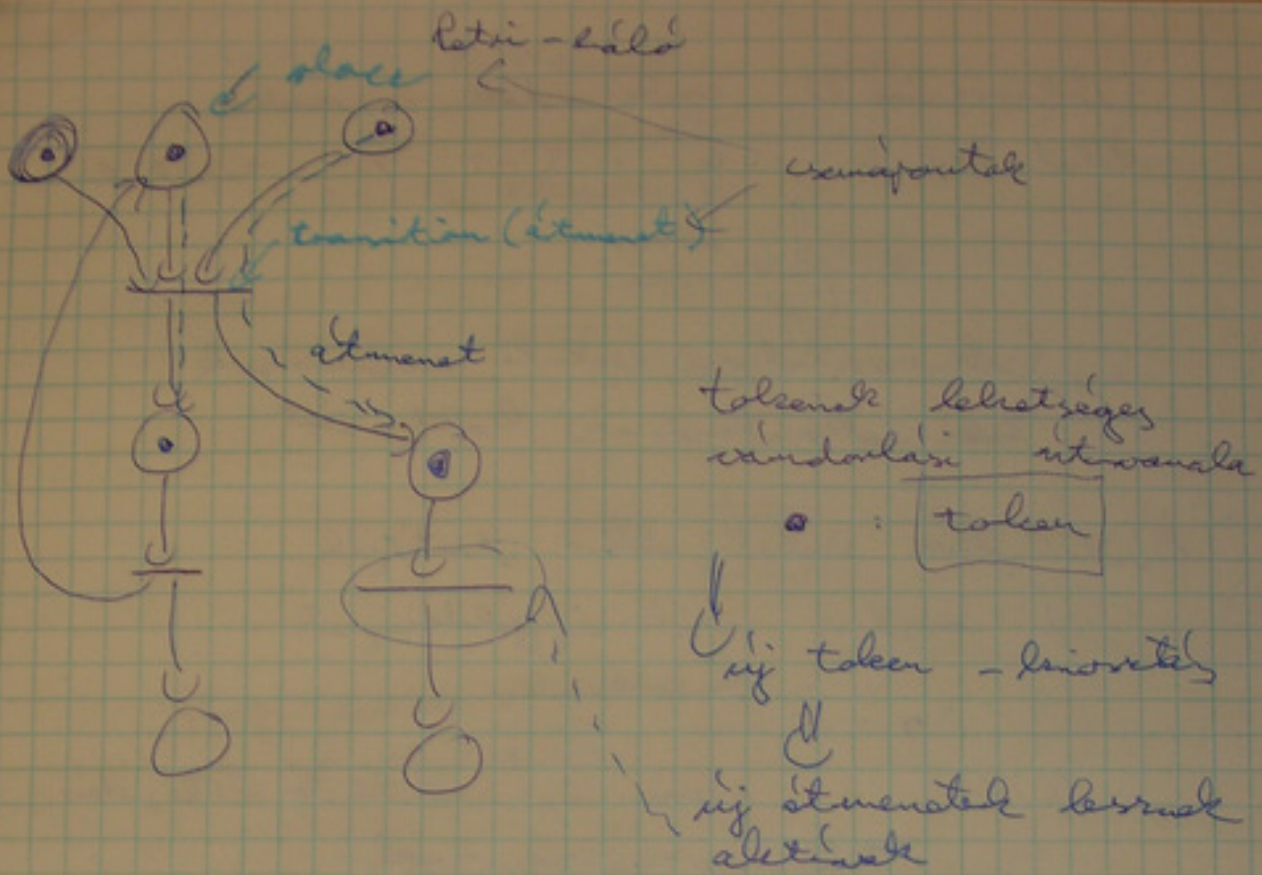 Petri-háló
place
csomópontok
transition (átmenet)
átmenet
tokenek lehetséges
vándorlási útvonala
: token
új token - kiosztás
új átmenetek lesznek
aktívak